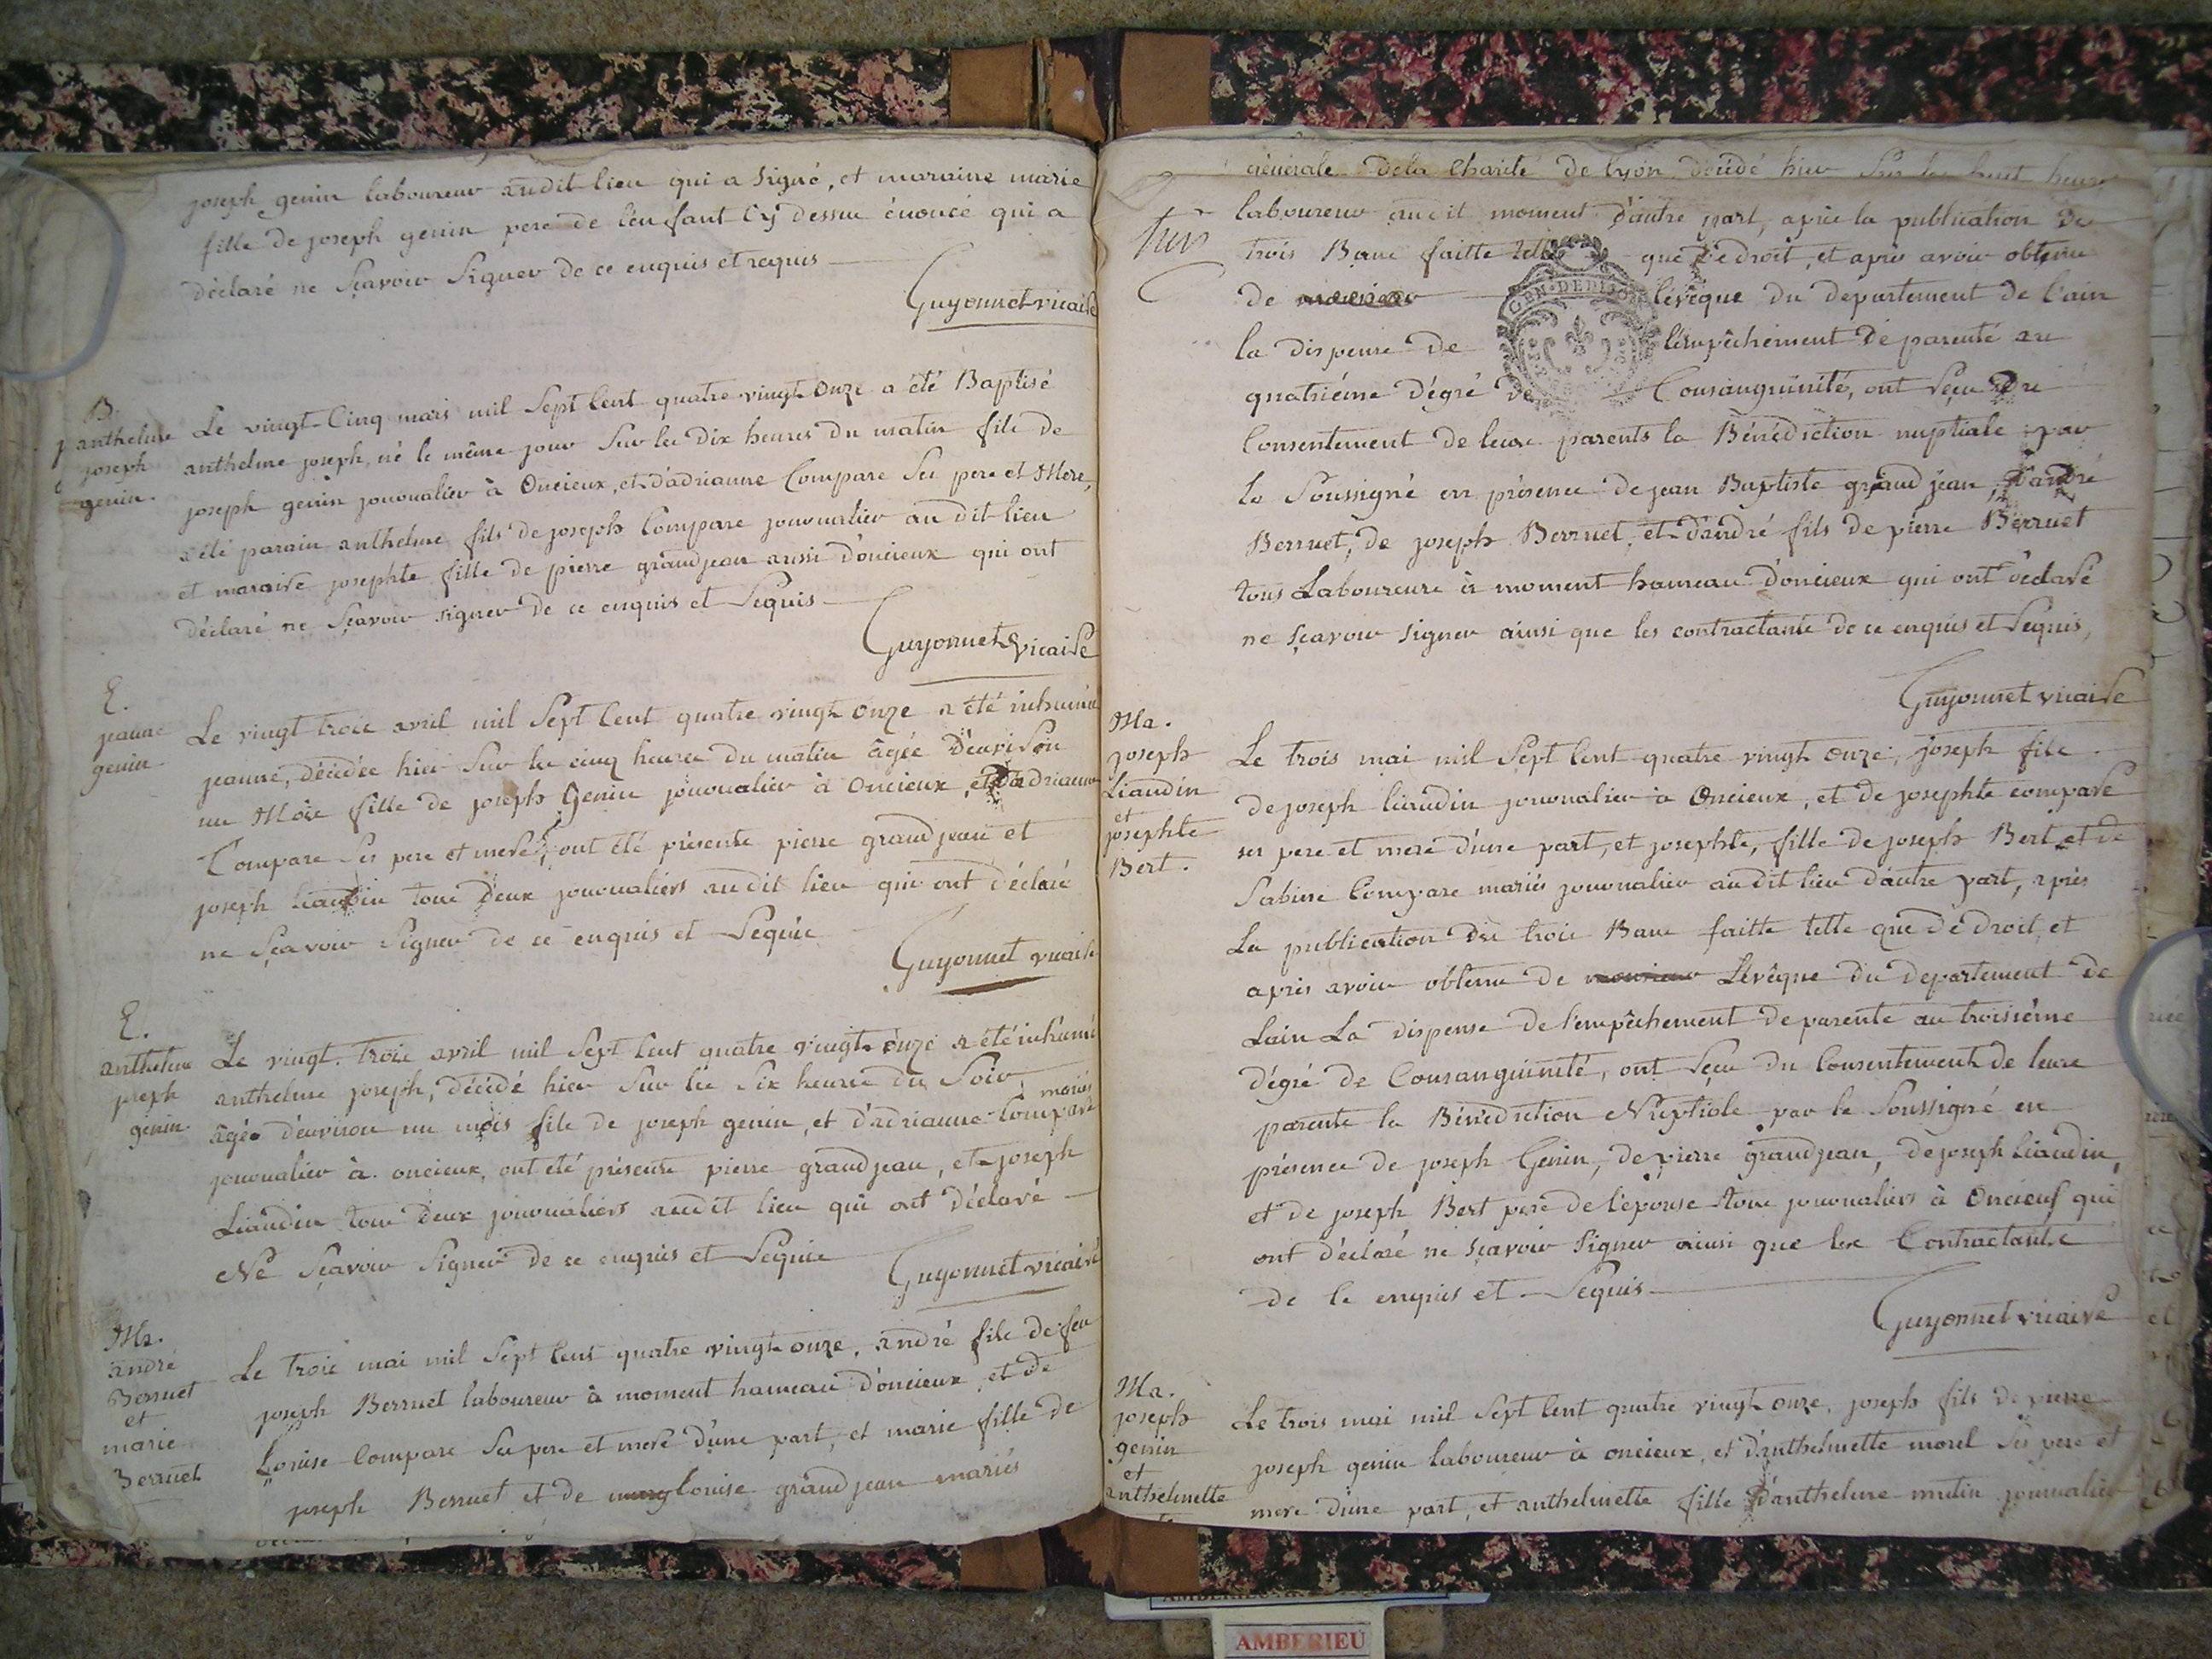 joseph genin laboureur audit lieu qui a signé, et maraine marie
fille de joseph genin pere de l'enfant cy dessu énoncé qui a
déclaré ne sçavoir signer de ce enquis et requis
Guyonnet vicaire
B.
anthelme
joseph
genin.
Le vingt-cinq mars mil sept cent quatre vingt onze a été Baptisé
anthelme joseph, né le même jour sur les dix heures du matin fils de
joseph genin journalier à Oncieux, et d'adrianne Compare ses pere et Mere,
a été parain anthelme fils de joseph Compare journalier au dit lieu
et maraine josephte fille de pierre grandjean aussi d'oncieux qui ont
déclaré ne sçavoir signer de ce enquis et requis
Guyonnet vicaire
E.
jeanne
genin
Le vingt trois avril mil sept cent quatre vingt onze a été inhumée
jeanne, décédée hier sur les cinq heures du matin âgée d'environ
un Mois fille de joseph Genin journalier à Oncieux, et d'adrianne
Compare ses pere et mere, ont été présents pierre grandjean et
joseph liaudin tous deux journaliers audit lieu qui ont déclaré
ne sçavoir signer de ce enquis et requis
Guyonnet vicaire
E.
anthelme
joseph
genin.
Le vingt-trois avril mil sept cent quatre vingt onze a été inhumé
anthelme joseph, décédé hier sur les six heures du soir,
mariés
âgé d'environ un mois fils de joseph genin, et d'adrianne Compare
journalier à oncieux, ont été présents pierre grandjean, et joseph
Liaudin tous deux journaliers audit lieu qui ont déclaré
Ne sçavoir signer de ce enquis et requis
Guyonnet vicaire
Ma.
andré
Berruet
et
marie
Berruet
Le trois mai mil sept cent quatre vingt onze, andré fils de feu
joseph Berruet laboureur à moment hameau d'oncieux, et de
Louise Compare ses pere et mere d'une part, et marie fille de
joseph Berruet et de louise grandjean mariés
générale de la Charité de lyon décédé hier sur les huit heures
laboureur audit moment d'autre part, après la publication de
trois Bans faitte telle que de droit, et après avoir obtenu
de l'évêque du département de l'ain
la dispense de l'empêchement de parenté au
quatriéme dégré de Consanguinité, ont reçu du
Consentement de leurs parents la Bénédiction nuptiale par
le Soussigné en présence de jean Baptiste grandjean, d'andré
Berruet, de joseph Berruet, et d'andré fils de pierre Berruet
tous Laboureurs à moment hameau d'oncieux qui ont déclaré
ne sçavoir signer ainsi que les contractants de ce enquis et requis,
Guyonnet vicaire
Ma.
joseph
Liaudin
et
josephte
Bert.
Le trois mai mil sept cent quatre vingt onze, joseph fils
de joseph liaudin journalier à Oncieux, et de josephte compare
ses pere et mere d'une part, et josephte, fille de joseph Bert et de
Sabine Compare mariés journalier audit lieu d'autre part, après
La publication des trois Bans faitte telle que de droit, et
après avoir obtenu de monsieur L'évêque du departement de
Lain La dispense de l'empêchement de parenté au troisième
dégré de Consanguinité, ont reçu du Consentement de leurs
parents la Bénédiction Nuptiale par le Soussigné en
présence de joseph Genin, de pierre grandjean, de joseph Liaudin,
et de joseph Bert pere de l'épouse tous journaliers à Oncieux qui
ont déclaré ne sçavoir signer ainsi que les Contractants
de ce enquis et requis
Guyonnet vicaire
Ma.
joseph
genin
et
anthelmette
Le trois mai mil sept cent quatre vingt onze, joseph fils de pierre
joseph genin laboureur à oncieux, et d'anthelmette morel ses pere et
mere d'une part, et anthelmette fille d'anthelme mutin journalier
GEN. DE DIJON
AMBERIEU